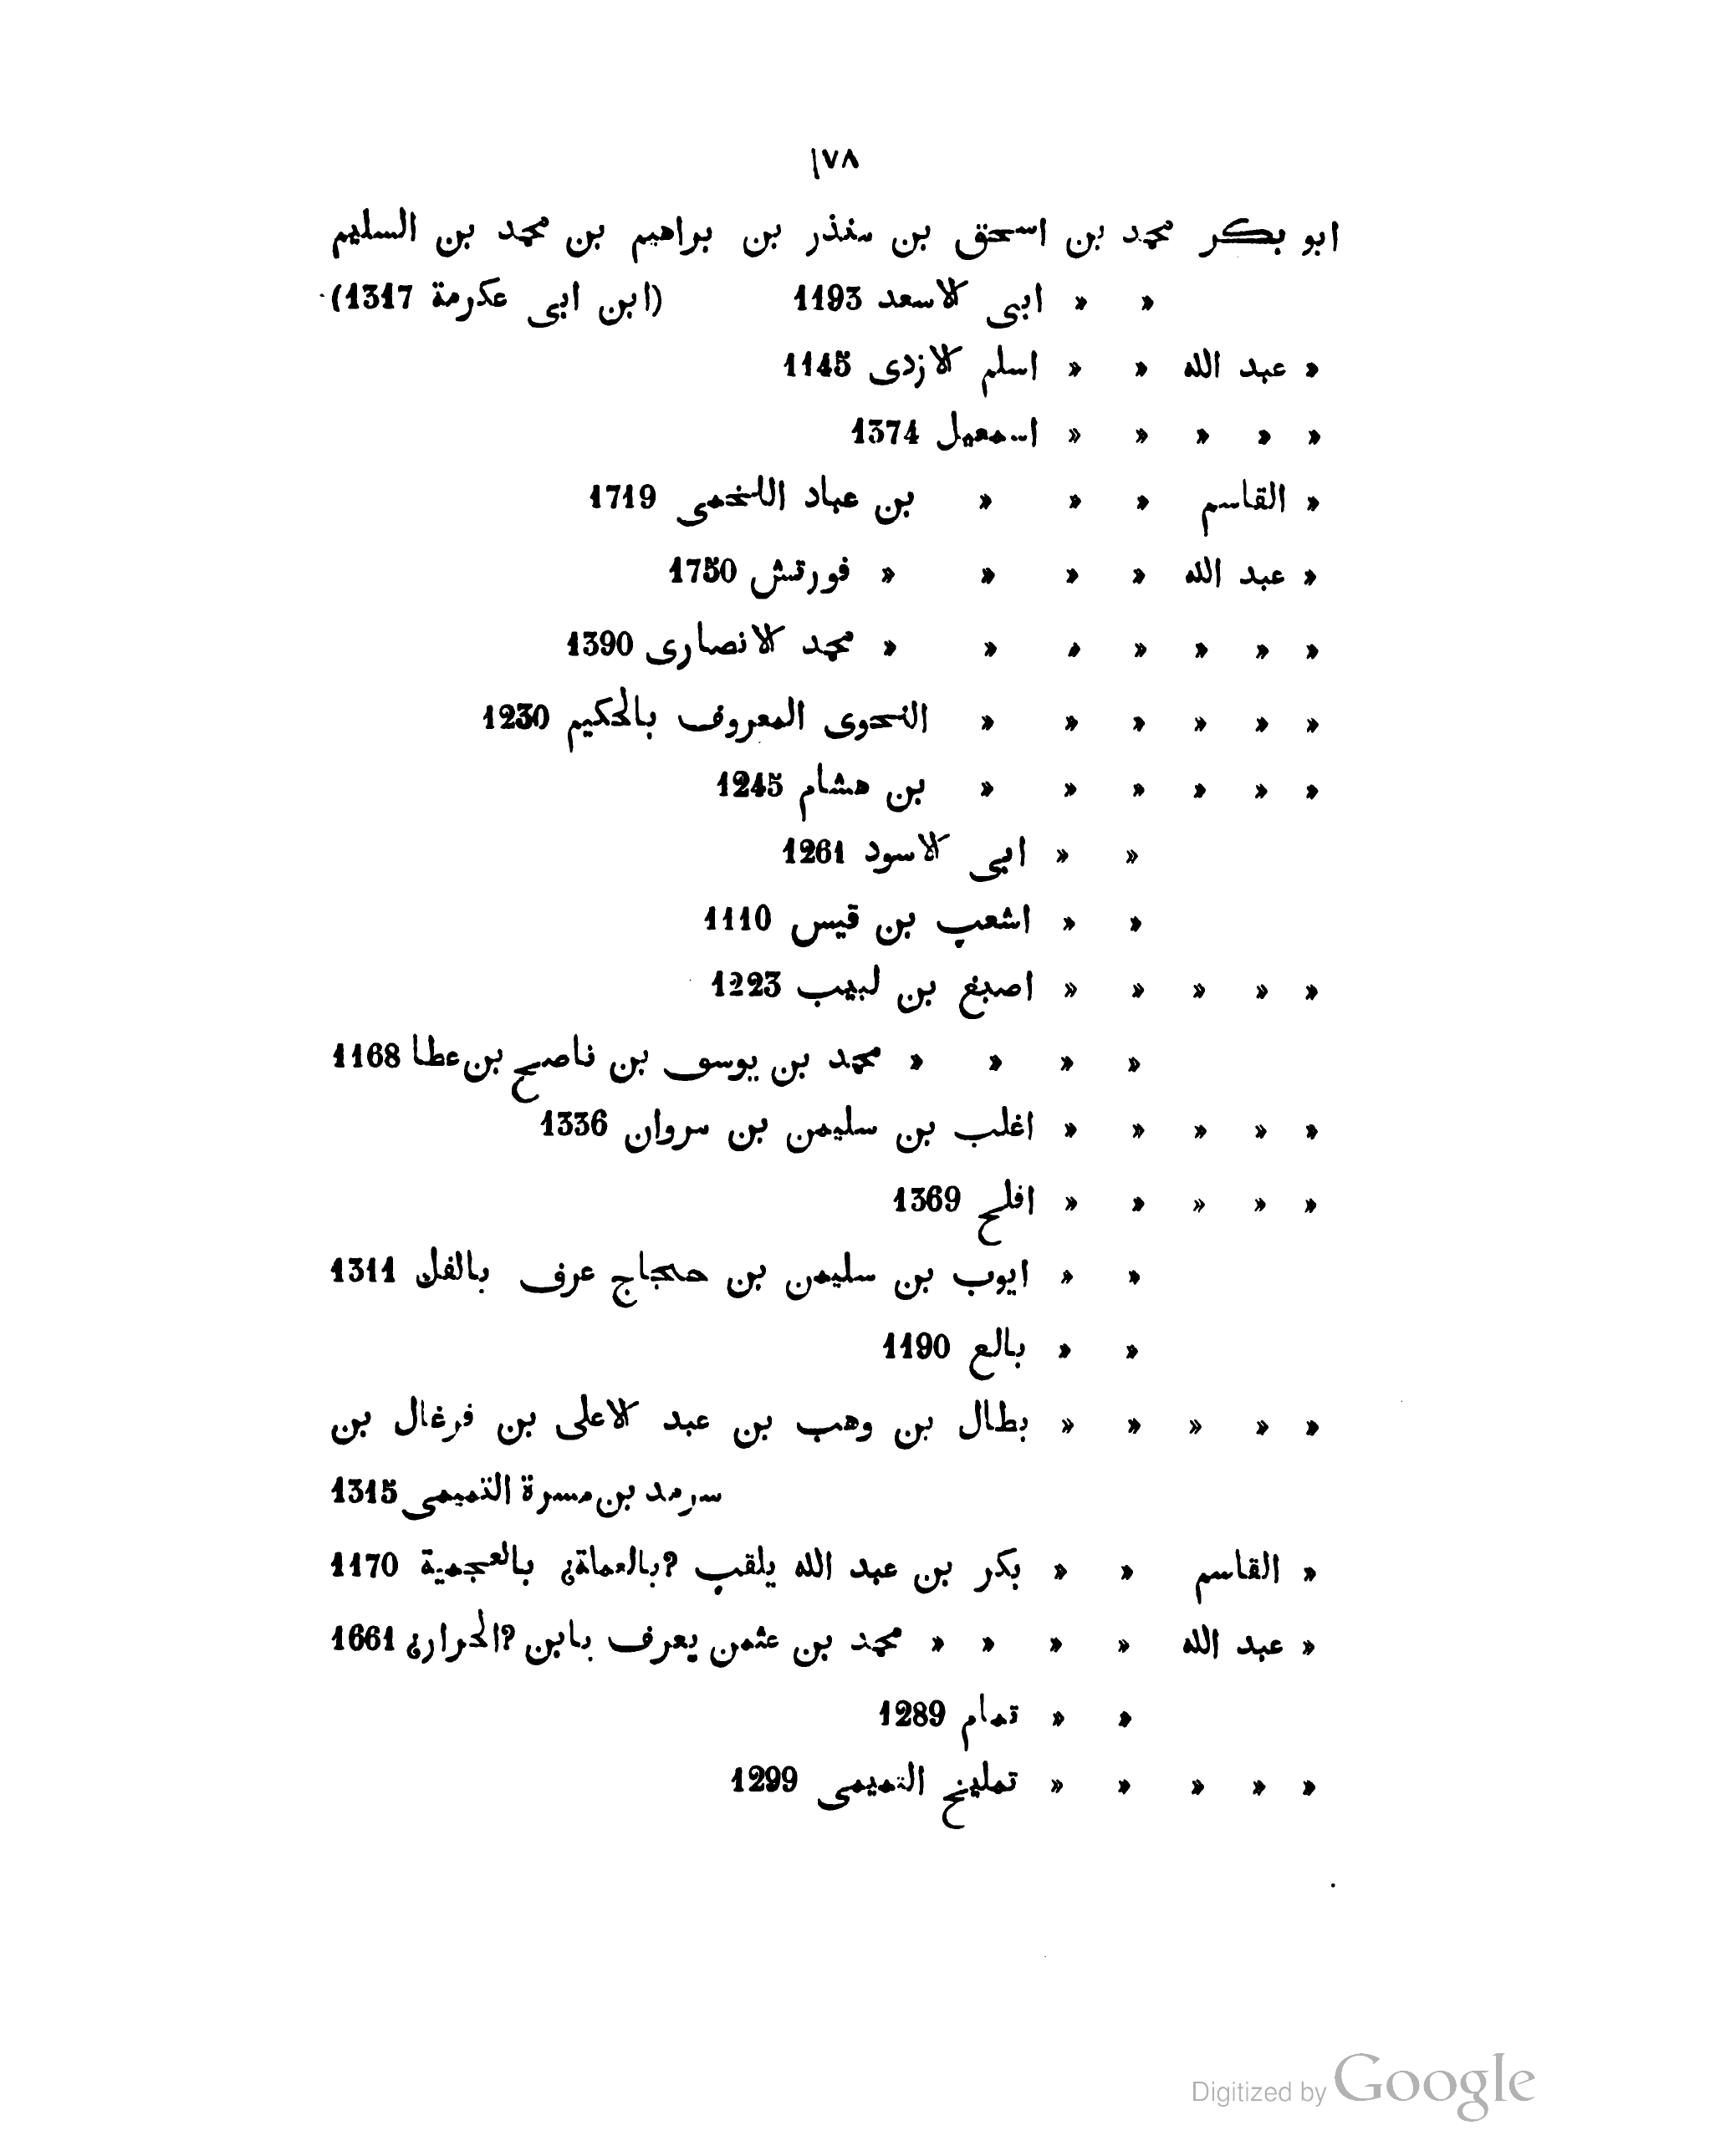 ١٧٨
ابو بكر محمد بن اسحق بن منذر بن براهيم بن محمد بن السليم
(ابن ابى عكرمة 1317)
» » ابى الاسعد 1193
» عبد الله » » اسلم الازدى 1145
» » » » » اسمعيل 1374
» القاسم » » » بن عباد اللخمى 1719
» عبد الله » » » » فورتش 1750
» » » » » » » محمد الانصارى 1390
» » » » » » النحوى المعروف بالحكيم 1230
» » » » » » بن هشام 1245
» » ابى الاسود 1261
» » اشعب بن قيس 1110
» » » » » اصبغ بن لبيب 1223
» » » » محمد بن يوسف بن ناصح بن عطا 1168
» » » » » اغلب بن سليمن بن مروان 1336
» » » » » افلح 1369
» » ايوب بن سليمن بن حجاج عرف بالفل 1311
» » بالع 1190
» » » » » بطال بن وهب بن عبد الاعلى بن فرغال بن
سرمد بن مسرة التميمى 1315
» القاسم » » بكر بن عبد الله يلقب ?بالعماة¿ بالعجمية 1170
» عبد الله » » » » محمد بن عثمن يعرف بابن ?الحرار¿ 1661
» » تمام 1289
» » » » » تمليخ التميمى 1299
Digitized by Google